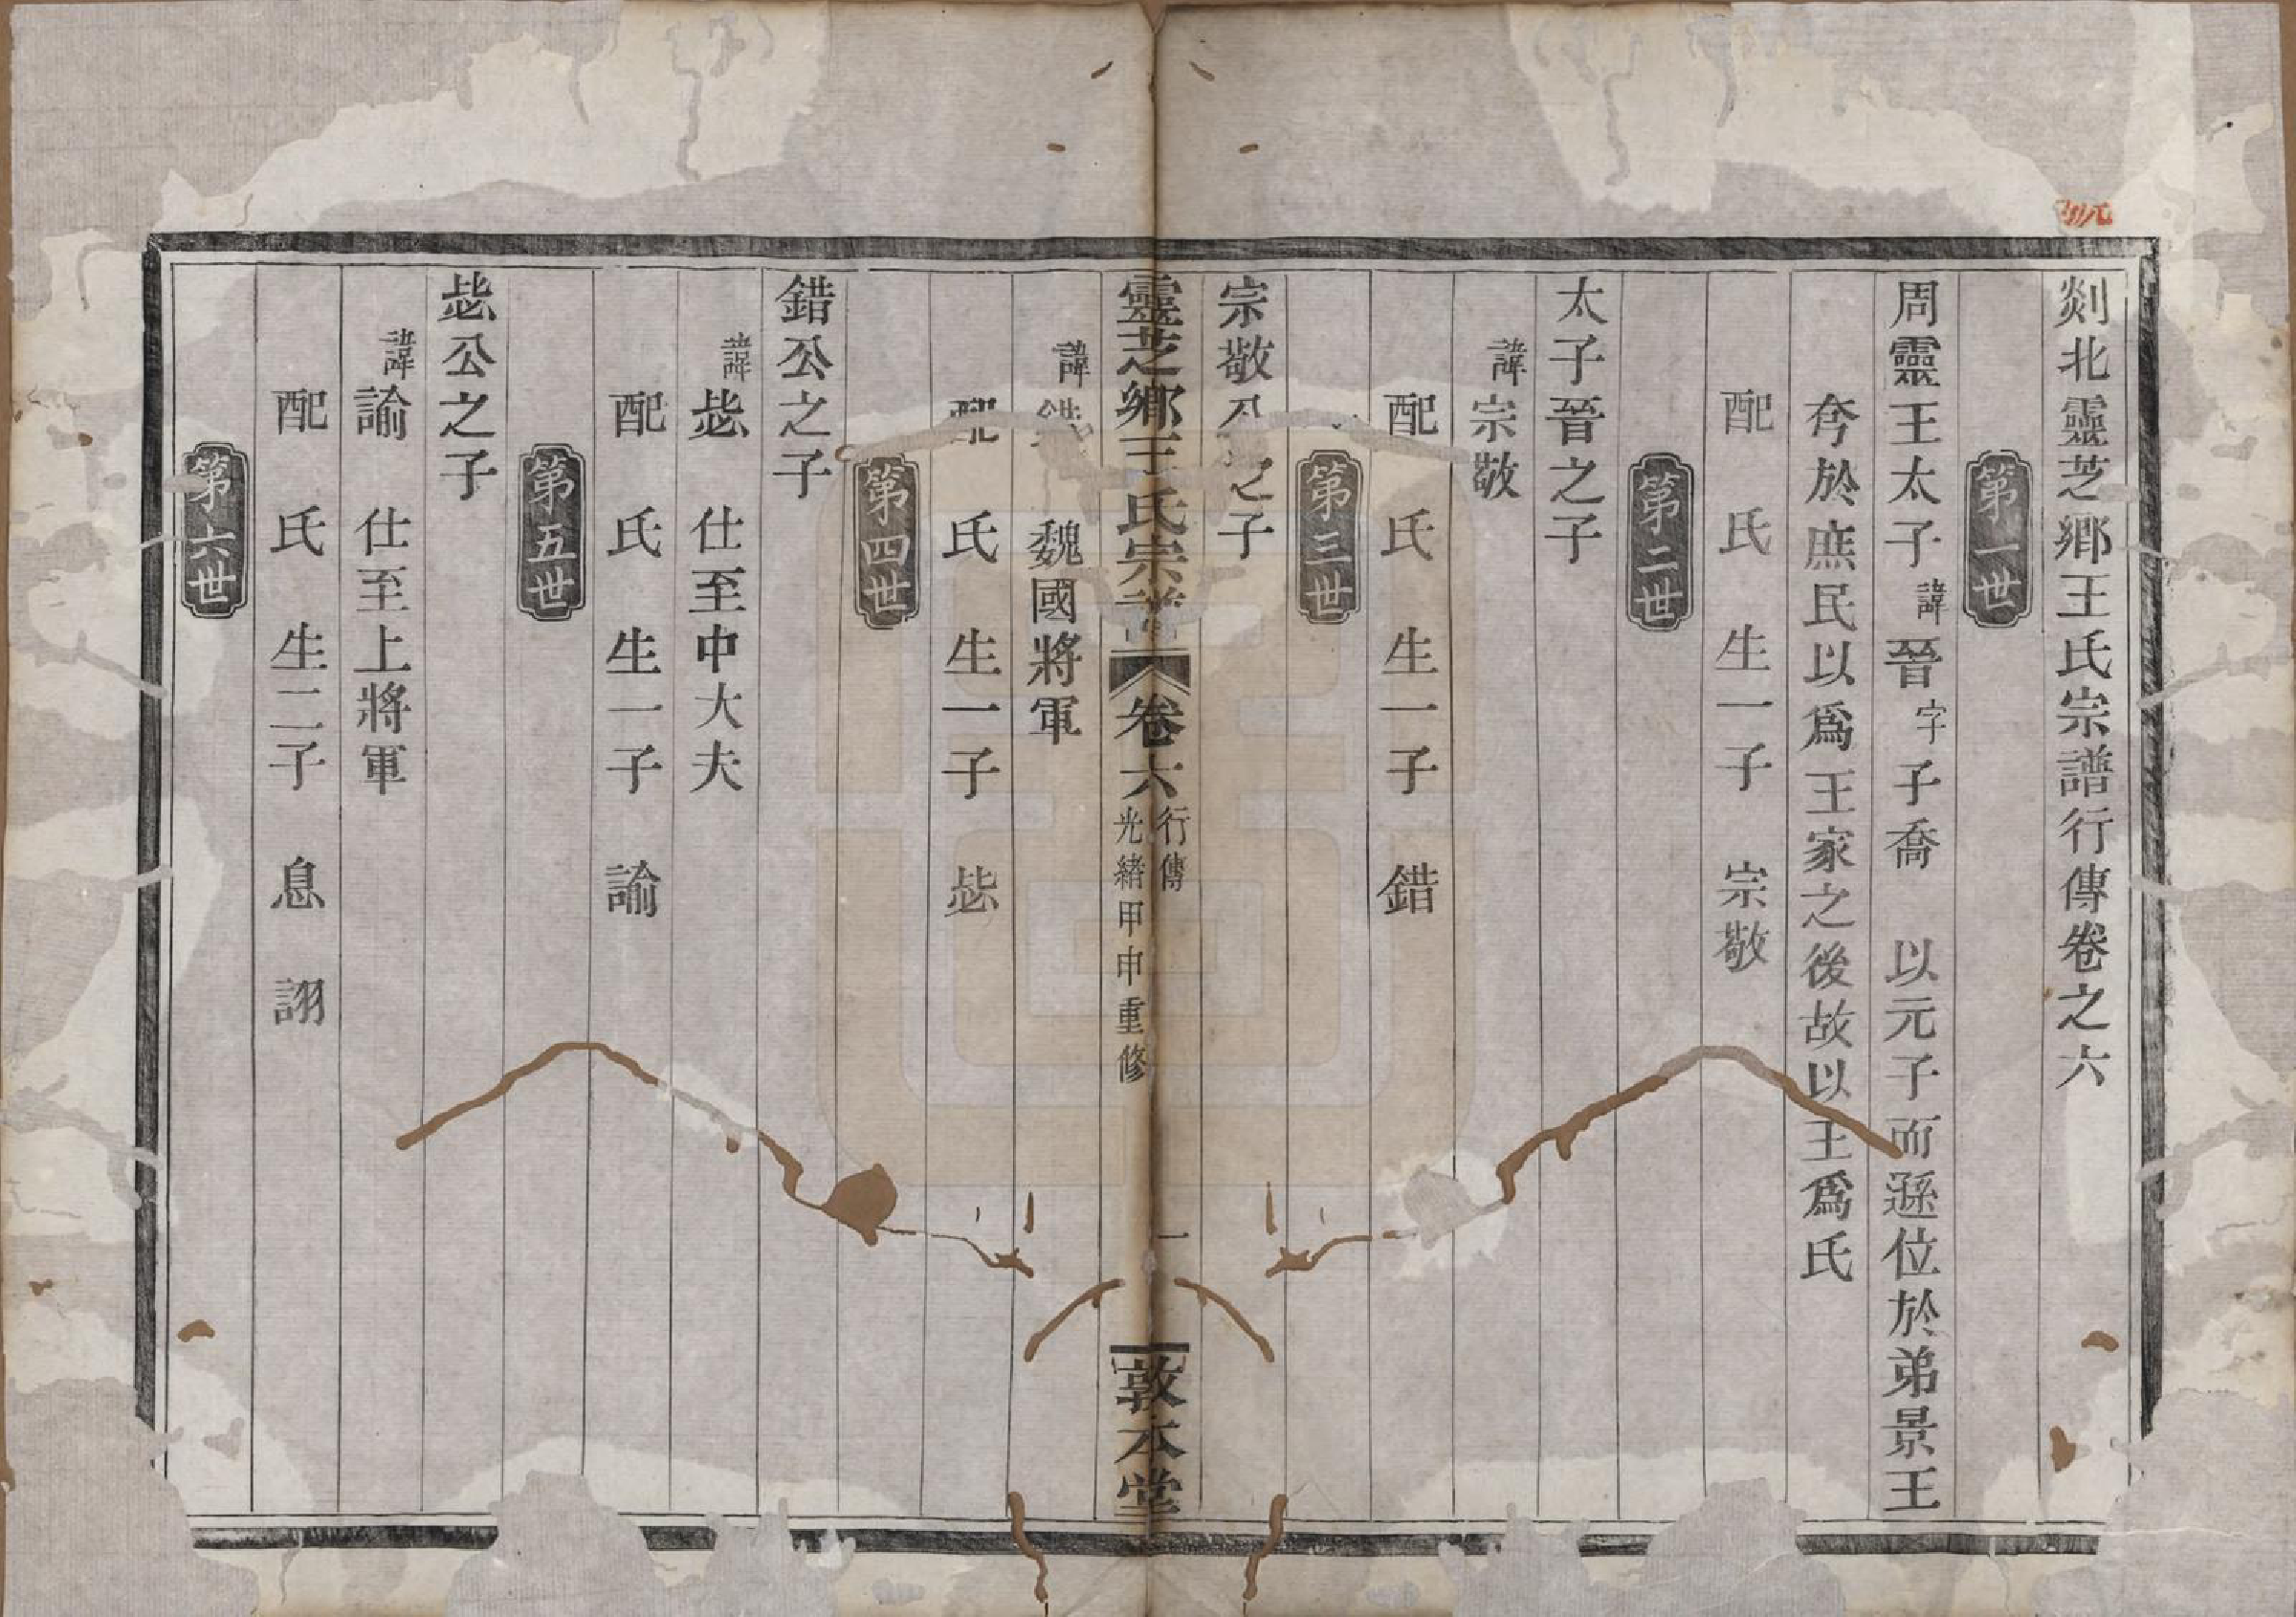 剡北靈芝鄉王氏宗譜行傳卷之六
第一世
周靈王太子諱晉字子喬　以元子而遜位於弟景王
夸於庶民以爲王家之後故以王爲氏
配　氏　生一子　宗敬
第二世
太子晉之子
諱宗敬
配　氏　生一子　錯
第三世
宗敬公之子
靈芝鄉王氏宗譜　卷六　行傳　光緒甲申重修　一　敦本堂
諱錯　魏國將軍
配　氏　生一子　毖
第四世
錯公之子
諱毖　仕至中大夫
配　氏　生一子　諭
第五世
毖公之子
諱諭　仕至上將軍
配　氏　生二子　息　詡
第六世